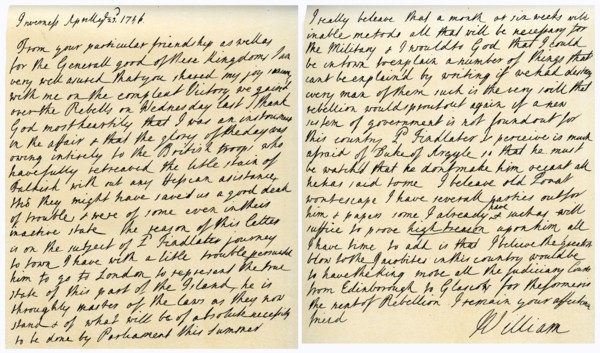 Inverness April ye 23d 1746.
From your particular friendship as well as
for the Generall good of these Kingdoms I am
very well assured that you shared my joy
with me on the compleat Victory we gained
over the Rebells on Wednesday last I thank
God most heartily that I was an instrument
in the affair & that the glory of the day was
owing intirely to the British troops who
have fully retreaved the little stain of
Falkirk with out any Hessian asistance,
tho they might have saved us a good deal
of trouble & were of some even in their
inactive state. the reason of this letter
is on the subject of Ld Findlater journey
to town I have with a litle trouble persuaded
him to go to London to represent the true
state of this part of the Island, he is
throughly master of the laws as they now
stand & of what will be of absolute necessity
to be done by Parliament this Summer
I really beleave that a month or six weeks will
inable me to do all that will be necessary for
the Military & I would to God that I could
be in town to explain a number of things that
cant be explain'd by writing if we had destroy
every man of them such is the very soil that
rebellion would sprout out again if a new
system of government is not found out for
this country Ld Findlater I perceive is much
afraid of Duke of Argyle so that he must
be watched that he dont make him recant all
he has said to me. I beleave old Lovat
wont escape I have severall parties out for
him & papers some I already have & such as will
suffice to prove high treason upon him all
I have time to add is that I believe the greatest
blow to the Jacobites in this country would be
to have the King move all the judiciary Courts
from Edinborough to Glascow for the former is
the neast of Rebellion I remain your affectionate
friend
William